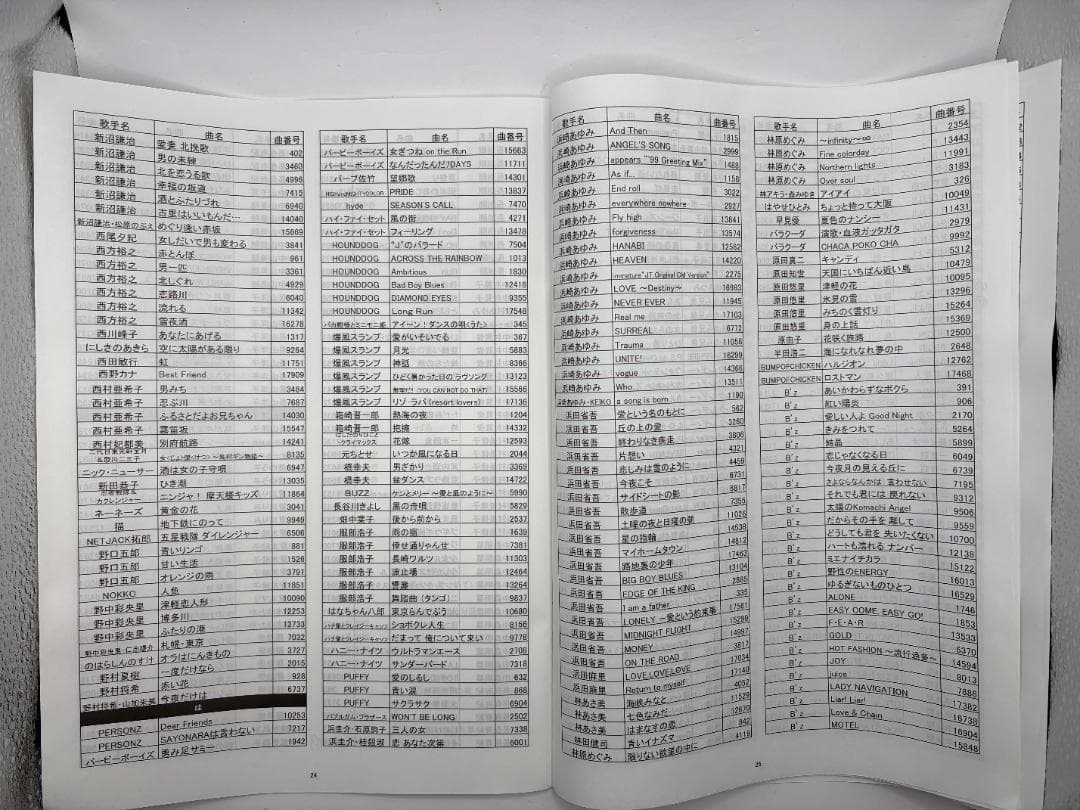 歌手名 曲名 曲番号
新沼謙治 愛妻 北挽歌 402
新沼謙治 男の未練 3460
新沼謙治 北を恋うる歌 4996
新沼謙治 幸福の坂道 7415
新沼謙治 酒とふたりづれ 6940
新沼謙治 古里はいいもんだ… 14040
新沼謙治・松原のぶえ めぐり逢い赤坂 15669
西尾夕紀 女しだいで男も変わる 3841
西方裕之 赤とんぼ 961
西方裕之 男一匹 3361
西方裕之 北しぐれ 4929
西方裕之 志路川 6040
西方裕之 流れる 11342
西方裕之 雪夜酒 16278
西川峰子 あなたにあげる 1317
にしきのあきら 空に太陽がある限り 9264
西田敏行 虹 11751
西野カナ Best Friend 17909
西村亜希子 男みち 3484
西村亜希子 忍ぶ川 7687
西村亜希子 ふるさとだよお兄ちゃん 14030
西村亜希子 霧笛坂 15547
西村妃都美 別府航路 14241
8135
ニック・ニューサー 酒は女の子守唄 6947
新田恭子 ひき潮 13035
ニンジャ! 摩天楼キッズ 11864
ネーネーズ 黄金の花 3041
猫 地下鉄にのって 9949
NETJACK拓郎 五星戦隊 ダイレンジャー 6506
野口五郎 青いリンゴ 881
野口五郎 甘い生活 1526
野口五郎 オレンジの雨 3761
NOKKO 人魚 11851
野中彩央里 津軽恋人形 10090
野中彩央里 博多川 12253
野中彩央里 ふたりの港 12733
札幌・東京 7032
のはらしんのすけ オラはにんきもの 3727
野村夏樹 一度だけなら 2015
野村将希 赤い花 928
野村将希・山加朱美 今夜だけは 6737
は
PERSONZ Dear Friends 10253
PERSONZ SAYONARAは言わない 7217
バービーボーイズ 勇み足サミー 1942
歌手名 曲名 曲番号
バービーボーイズ 女ぎつね on the Run 15663
バービーボーイズ なんだったんだ7DAYS 11711
バーブ佐竹 望郷歌 14301
PRIDE 13837
hyde SEASON'S CALL 7470
ハイ・ファイ・セット 風の街 4271
ハイ・ファイ・セット フィーリング 13478
HOUNDDOG "J"のバラード 7504
HOUNDDOG ACROSS THE RAINBOW 1013
HOUNDDOG Ambitious 1830
HOUNDDOG Bad Boy Blues 12416
HOUNDDOG DIAMOND EYES 9355
HOUNDDOG Long Run 17548
バカ殿様とミニモニ姫 アイ～ン! ダンスの唄<うた> 345
爆風スランプ 愛がいそいでる 367
爆風スランプ 月光 5683
爆風スランプ 神話 8366
爆風スランプ ひどく暑かった日のラヴソング 13123
爆風スランプ 無理だ!(YOU CAN NOT DO THAT) 15596
爆風スランプ リゾ・ラバ(resort lovers) 17136
箱崎晋一郎 熱海の夜 1204
箱崎晋一郎 抱擁 14332
はしだのりひことクライマックス 花嫁 12593
元ちとせ いつか風になる日 2044
橋幸夫 男ざかり 3369
橋幸夫 盆ダンス 14722
BUZZ ケンとメリー ～愛と風のように～ 5990
長谷川きよし 黒の舟唄 5829
畑中葉子 後から前から 2537
服部浩子 雨の宿 1639
服部浩子 倖せ通りゃんせ 7381
服部浩子 長崎ワルツ 11303
服部浩子 波止場 12464
服部浩子 雪灘 13264
服部浩子 舞踏曲(タンゴ) 9837
はなちゃん八郎 東京らんでぶう 10680
ハナ肇とクレイジーキャッツ ショボクレ人生 8156
ハナ肇とクレイジーキャッツ だまって 俺について来い 9778
ハニー・ナイツ ウルトラマンエース 2708
ハニー・ナイツ サンダーバード 7318
PUFFY 愛のしるし 632
PUFFY 青い涙 868
PUFFY サクラサク 6904
バブルガム・ブラザーズ WON'T BE LONG 2502
浜圭介・石原詢子 三人の女 7338
浜圭介・桂銀淑 恋 あなた次第 6001
24
歌手名 曲名 曲番号
浜崎あゆみ And Then 1815
浜崎あゆみ ANGEL'S SONG 2999
浜崎あゆみ appears "'99 Greeting Mix" 1488
浜崎あゆみ As if... 1158
浜崎あゆみ End roll 3022
浜崎あゆみ everywhere nowhere 2927
浜崎あゆみ Fly high 13641
浜崎あゆみ forgiveness 13574
浜崎あゆみ HANABI 12582
浜崎あゆみ HEAVEN 14220
浜崎あゆみ immature"JT Original CM Version" 2275
浜崎あゆみ LOVE ～Destiny～ 16983
浜崎あゆみ NEVER EVER 11945
浜崎あゆみ Real me 17103
浜崎あゆみ SURREAL 6772
浜崎あゆみ Trauma 11058
浜崎あゆみ UNITE! 16299
浜崎あゆみ vogue 14366
浜崎あゆみ Who... 13511
浜崎あゆみ・KEIKO a song is born 1190
浜田省吾 愛という名のもとに 562
浜田省吾 丘の上の愛 3280
浜田省吾 終わりなき疾走 3806
浜田省吾 片想い 4321
浜田省吾 悲しみは雪のように 4458
浜田省吾 今夜こそ 6731
浜田省吾 サイドシートの影 6817
浜田省吾 散歩道 7355
浜田省吾 土曜の夜と日曜の朝 11026
浜田省吾 星の指輪 14538
浜田省吾 マイホームタウン 14812
浜田省吾 路地裏の少年 17462
浜田省吾 BIG BOY BLUES 13104
浜田省吾 EDGE OF THE KNIFE 2885
浜田省吾 I am a father 335
浜田省吾 LONELY ～愛という約束事 17561
浜田省吾 MIDNIGHT FLIGHT 15269
浜田省吾 MONEY 14997
浜田省吾 ON THE ROAD 3817
浜田麻里 LOVE,LOVE,LOVE 17034
浜田麻里 Return to myself 17140
林あさ美 海峡みなと 4052
林あさ美 七色なみだ 11529
林あさ美 はまなすの恋 12670
林田健司 青いイナズマ 842
林原めぐみ 限りない欲望の中に 4119
歌手名 曲名 曲番号
林原めぐみ ～infinity～∞ 2354
林原めぐみ Fine colorday 13443
林原めぐみ Northern lights 11991
林原めぐみ Over soul 3183
林アキラ・森みゆき アイアイ 326
はやせひとみ ちょっと待って大阪 10049
早見優 夏色のナンシー 11431
バラクーダ 演歌・血液ガッタガタ 2979
バラクーダ CHACA POKO CHA 9992
原田真二 キャンディ 5312
原田知世 天国にいちばん近い島 10479
原田悠里 津軽の花 10095
原田悠里 氷見の雪 13296
原田悠里 みちのく雪灯り 15264
原田悠里 身の上話 15369
原由子 花咲く旅路 12500
半田浩二 海になれなれ夢の中 2648
BUMPOFCHICKEN ハルジオン 12762
BUMPOFCHICKEN ロストマン 17468
B'z あいかわらずなボクら 391
B'z 紅い陽炎 906
B'z 愛しい人よ Good Night 2170
B'z きみをつれて 5264
B'z 結晶 5899
B'z 恋じゃなくなる日 6049
B'z 今夜月の見える丘に 6739
B'z さよならなんかは 言わせない 7195
B'z それでも君には 戻れない 9312
B'z 太陽のKomachi Angel 9506
B'z だからその手を 離して 9559
B'z どうしても君を 失いたくない 10700
B'z ハートも濡れる ナンバー 12138
B'z ミエナイチカラ 15122
B'z 野性のENERGY 16013
B'z ゆるぎないものひとつ 16529
B'z ALONE 1746
B'z EASY COME, EASY GO! 1853
B'z F・E・A・R 13533
B'z GOLD 6370
B'z HOT FASHION ～流行過多～ 14594
B'z JOY 8013
B'z juice 7886
B'z LADY NAVIGATION 17382
B'z Liar! Liar! 16738
B'z Love & Chain 16904
B'z MOTEL 15848
25